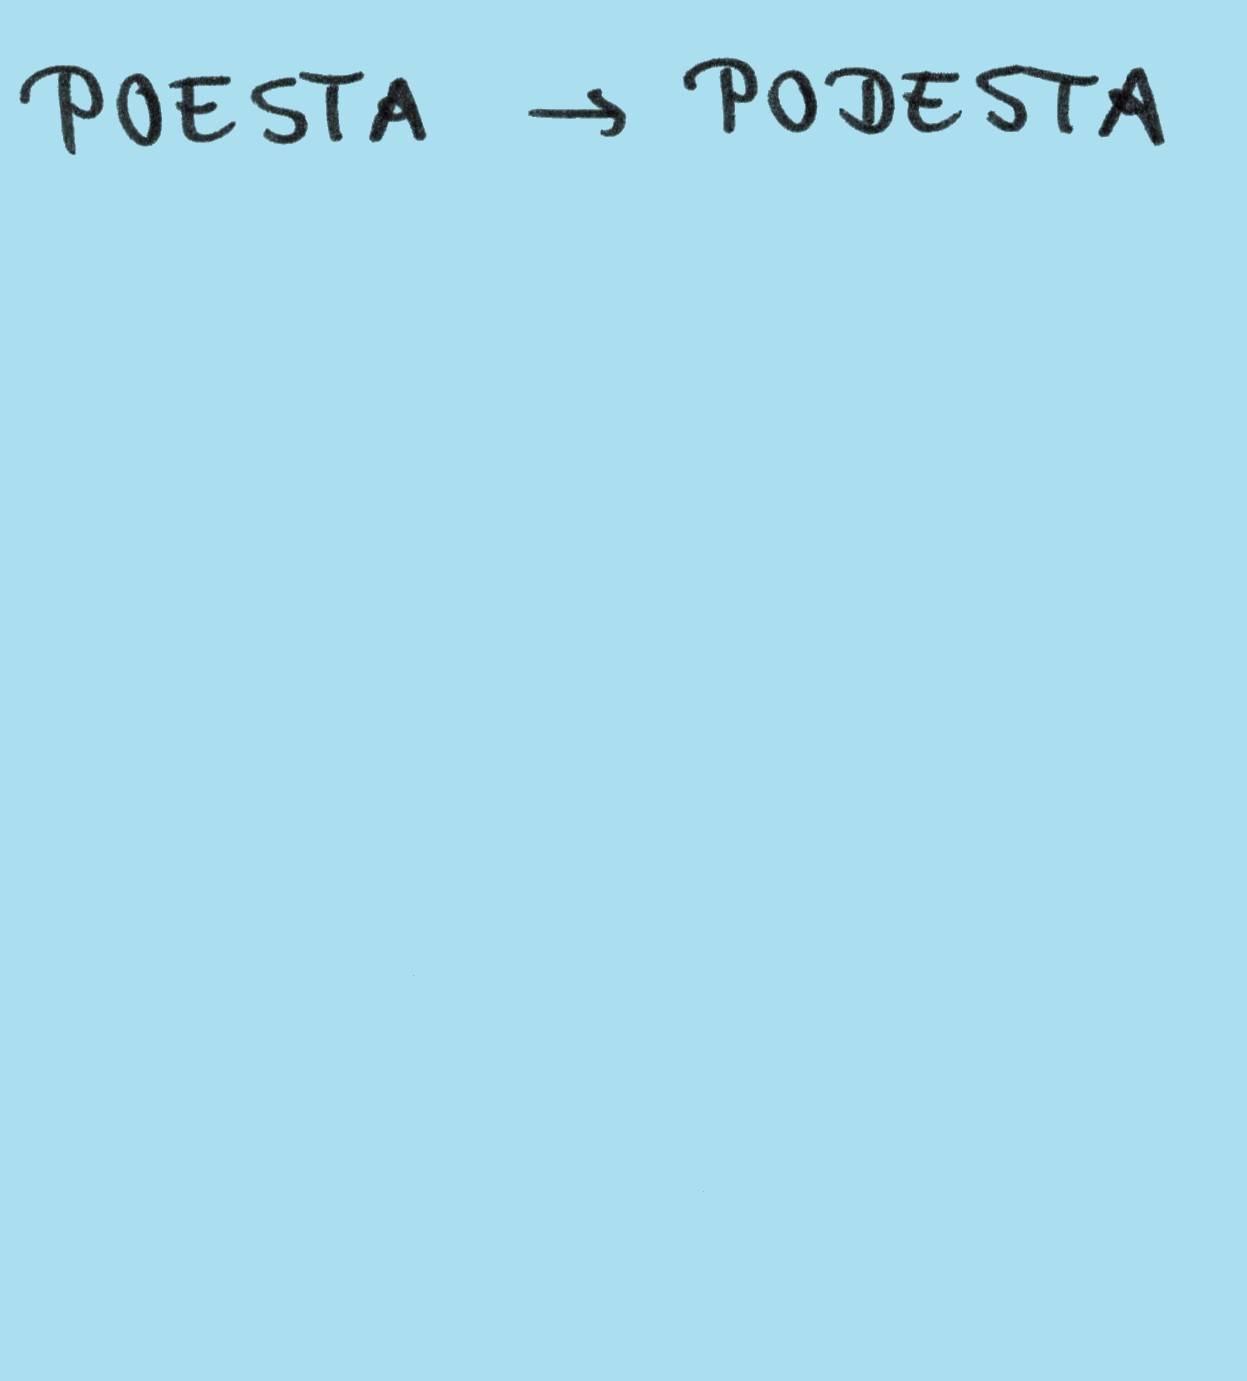 POESTA → PODESTA